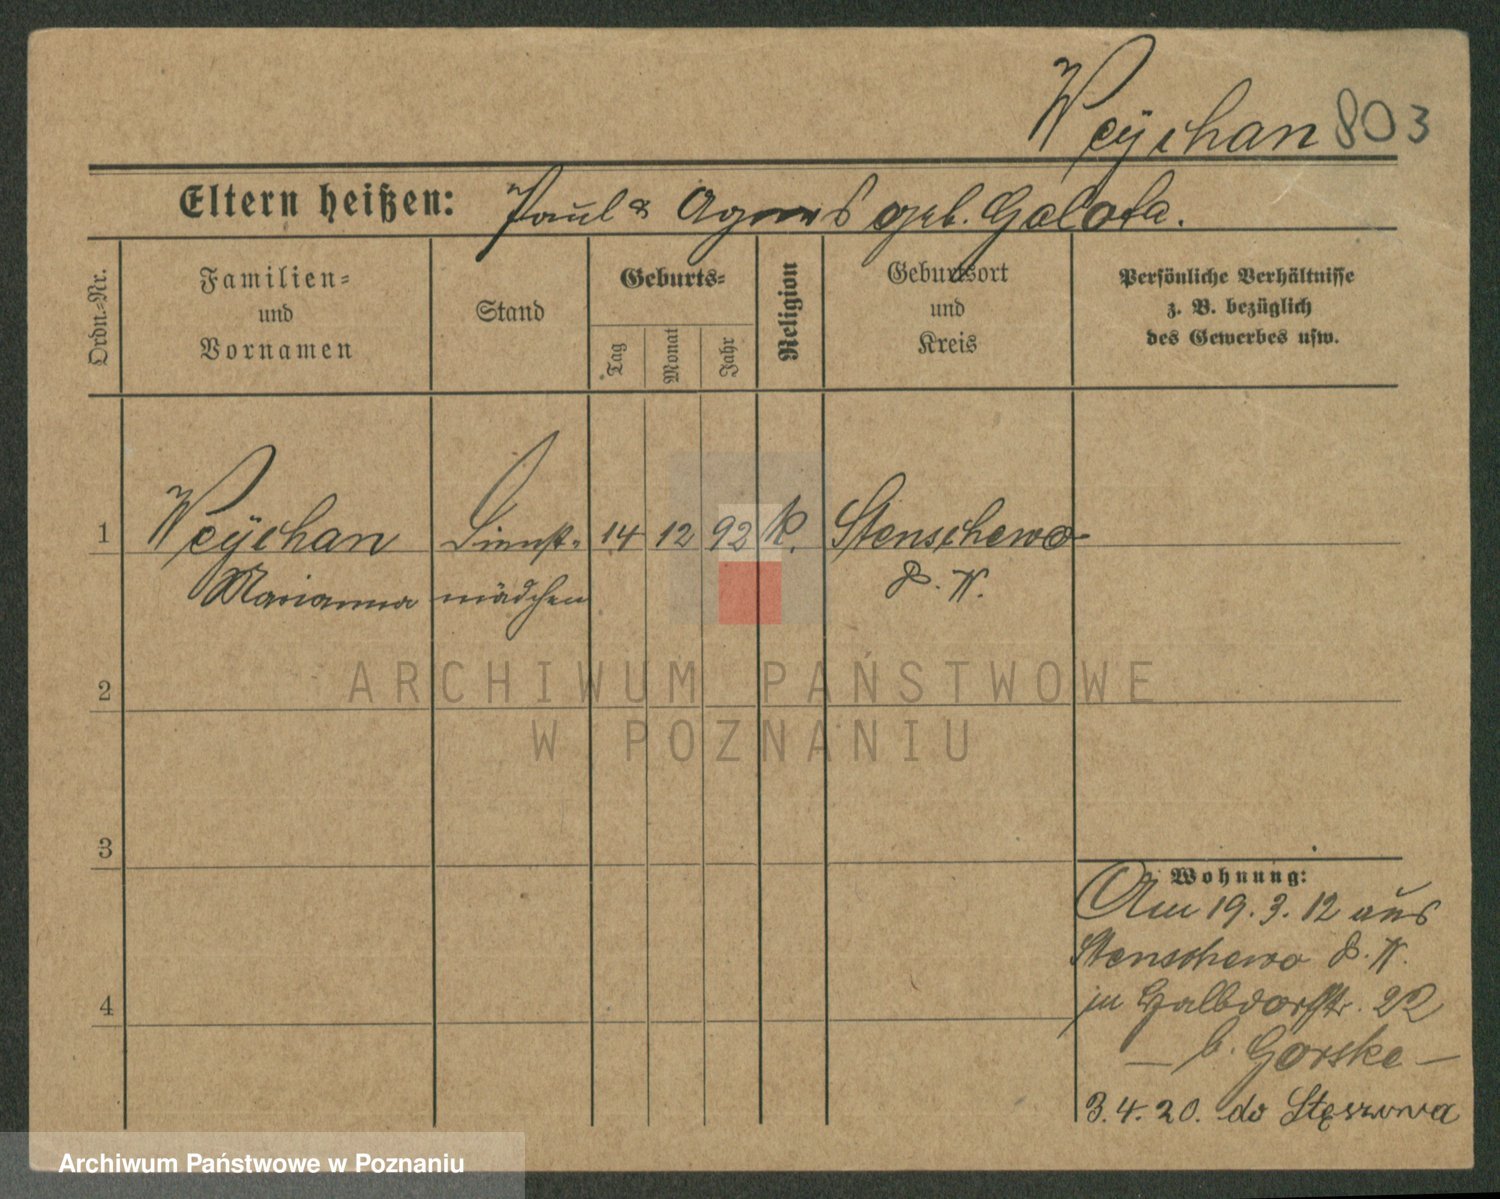 Weÿchan 803
Eltern heißen: Paul & Agnes geb. Galota.
Ordn.-Nr.
Familien-
und
Vornamen
Stand
Geburts-
Tag
Monat
Jahr
Religion
Geburtsort
und
Kreis
Persönliche Verhältnisse
z. B. bezüglich
des Gewerbes usw.
1 Weÿchan Dienst- 14 12 92 k. Stenschewo
Marianna mädchen P. W.
2
3
4
Wohnung:
Am 19.3.12 aus
Stenschewo P. W.
in Halbdorfstr. 22
— b. Gorske —
3.4.20. do Stęszewa
ARCHIWUM PAŃSTWOWE
W POZNANIU
Archiwum Państwowe w Poznaniu